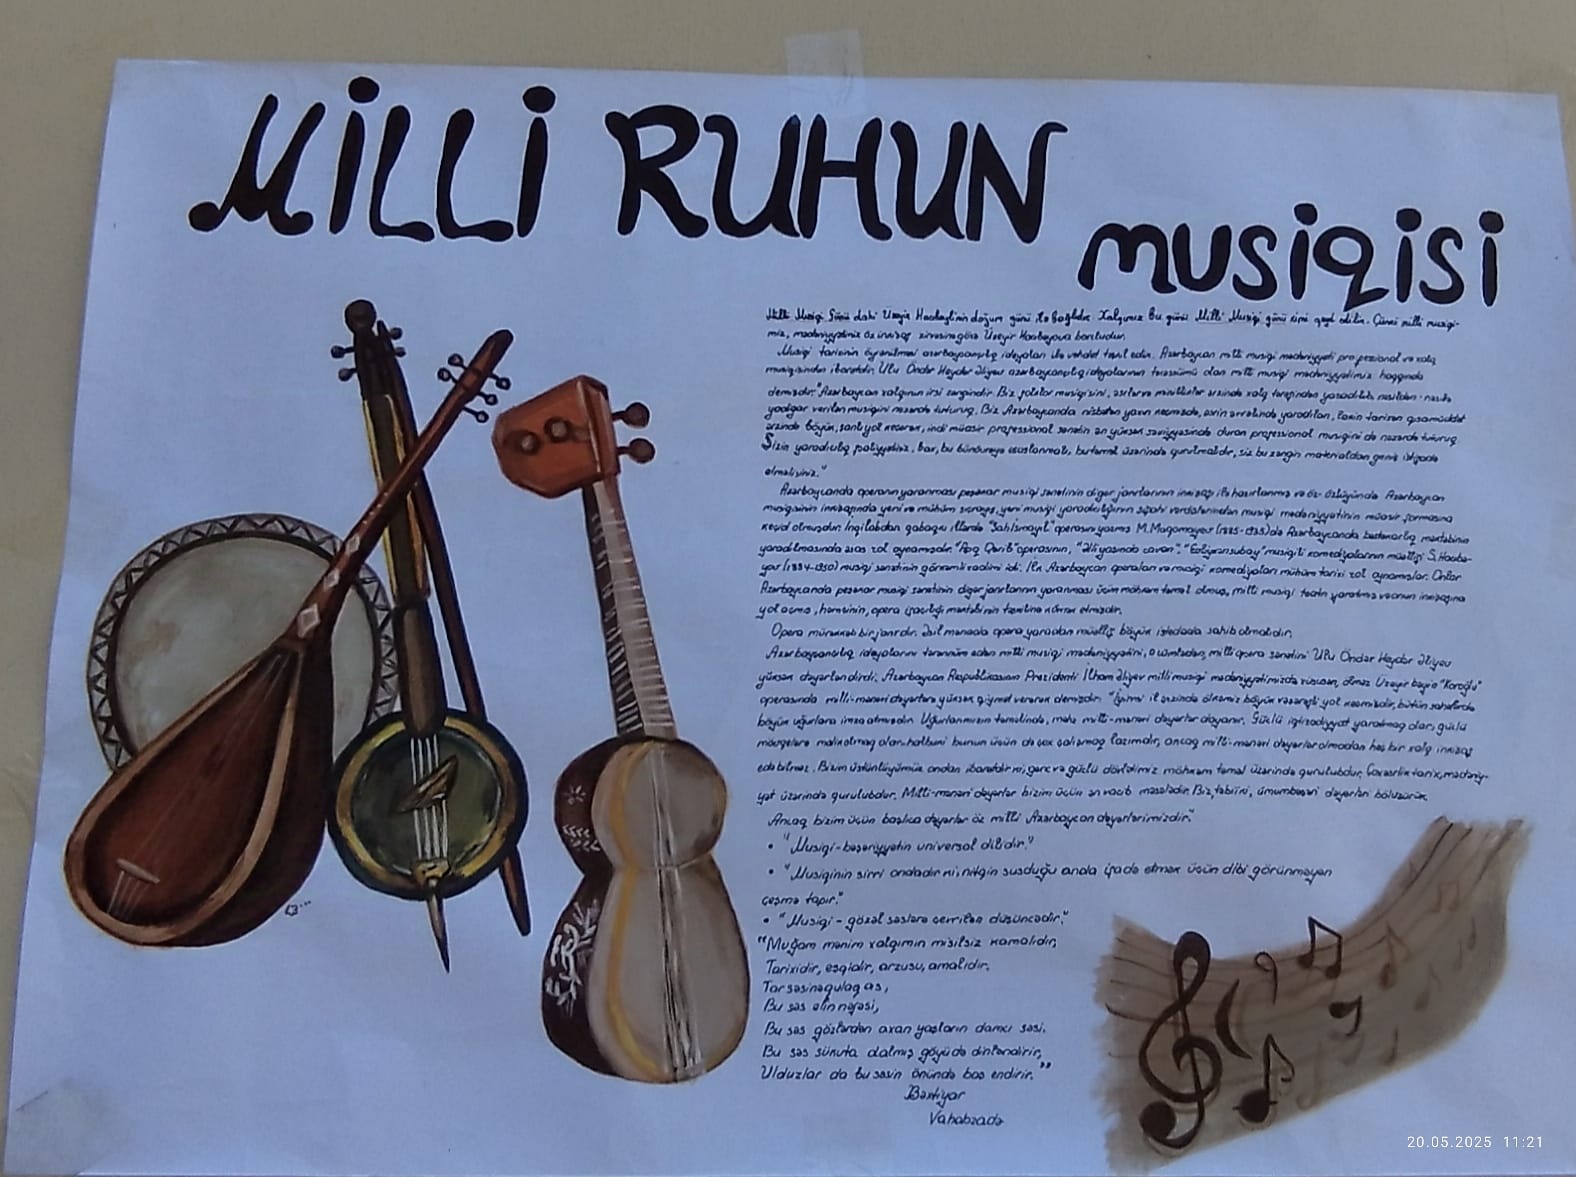 MİLLİ RUHUN
musiqisi
Milli Musiqi Günü dahi Üzeyir Hacıbəylinin doğum günü ilə bağlıdır. Xalqımız bu günü Milli Musiqi günü kimi qeyd edilir. Çünki milli musiqi-
miz, mədəniyyətimiz öz inkişaf zirvəsinə görə Üzeyir Hacıbəyova borcludur.
Musiqi tarixinin öyrənilməsi azərbaycançılıq ideyaları ilə vəhdət təşkil edir. Azərbaycan milli musiqi mədəniyyəti professional və xalq
musiqisindən ibarətdir. Ulu Öndər Heydər Əliyev azərbaycançılıq ideyalarının tərənnümü olan milli musiqi mədəniyyətimiz haqqında
demişdir: "Azərbaycan xalqının irsi zəngindir. Biz folklor musiqisini, əsrlər və minilliklər ərzində xalq tərəfindən yaradılıb, nəsildən-nəslə
yadigar verilən musiqini nəzərdə tuturuq. Biz Azərbaycanda nisbətən yaxın keçmişdə, əsrin əvvəlində yaradılan, lakin tarixən qısa müddət
ərzində böyük, şanlı yol keçərək, indi müasir professional sənətin ən yüksək səviyyəsində duran professional musiqini də nəzərdə tuturuq.
Sizin yaradıcılıq fəaliyyətiniz, bax, bu bünövrəyə əsaslanmalı, bu təməl üzərində qurulmalıdır, siz bu zəngin materialdan geniş istifadə
etməlisiniz."
Azərbaycanda operanın yaranması peşəkar musiqi sənətinin digər janrlarının inkişafı ilə hazırlanmış və öz-özlüyündə Azərbaycan
musiqisinin inkişafında yeni və mühüm
keçid olmuşdur. İnqilabdan qabaqkı illərdə "Şah İsmayıl" operasını yazmış M. Maqomayev (1885-1935) də Azərbaycanda bəstəkarlıq məktəbinin
yaradılmasında əsas rol oynamışdır. "Aşıq Qərib" operasının, "Əli yaşında cavan", "Evliykən subay" musiqili komediyalarının müəllifi S. Hacıbə-
yov (1884-1950) musiqi sənətinin görkəmli xadimi idi. İlk Azərbaycan operaları və musiqi komediyaları mühüm tarixi rol oynamışlar. Onlar
Azərbaycanda peşəkar musiqi sənətinin digər janrlarının yaranması üçün möhkəm təməl olmuş, milli musiqi teatrı yaratmış və onun inkişafına
yol açmış, həmçinin, opera ifaçılığı məktəbinin təşkilinə kömək etmişdir.
Opera mürəkkəb bir janrdır. Əsil mənada opera yaradan müəllif böyük istedada sahib olmalıdır.
Azərbaycançılıq ideyalarını tərənnüm edən milli musiqi mədəniyyətini, o cümlədən, milli opera sənətini Ulu Öndər Heydər Əliyev
yüksək dəyərləndirdi. Azərbaycan Respublikasının Prezidenti İlham Əliyev milli musiqi mədəniyyətimizdə xüsusən, ölməz Üzeyir bəyin "Koroğlu"
operasında milli-mənəvi dəyərlərə yüksək qiymət verərək demişdir: "İyirmi il ərzində ölkəmiz böyük və şərəfli yol keçmişdir, bütün sahələrdə
böyük uğurlara imza atmışdır. Uğurlarımızın təməlində, məhz milli-mənəvi dəyərlər dayanır. Güclü iqtisadiyyat yaratmaq olar, güclü
mövqelərə malik olmaq olar. halbuki bunun üçün də çox çalışmaq lazımdır, ancaq milli-mənəvi dəyərlər olmadan heç bir xalq inkişaf
edə bilməz. Bizim üstünlüyümüz ondan ibarətdir ki, gənc və güclü dövlətimiz möhkəm təməl üzərində qurulubdur. Çoxəsrlik tarix, mədəniy-
yət üzərində qurulubdur. Milli-mənəvi dəyərlər bizim üçün ən vacib məsələdir. Biz, təbii ki, ümumbəşəri dəyərləri bölüşürük.
Ancaq bizim üçün başlıca dəyərlər öz milli Azərbaycan dəyərlərimizdir."
• "Musiqi-bəşəriyyətin universal dilidir."
• "Musiqinin sirri ondadır ki, nitqin susduğu anda ifadə etmək üçün dibi görünməyən
çeşmə tapır."
• "Musiqi - gözəl səslərə çevrilən düşüncədir."
"Muğam mənim xalqımın misilsiz kamalıdır,
Tarixidir, eşqidir, arzusu, amalıdır.
Tar səsinə qulaq as,
Bu səs elin nəfəsi,
Bu səs gözlərdən axan yaşların damcı səsi.
Bu səs sükuta dalmış göyü də dinləndirir,
Ulduzlar da bu səsin önündə baş endirir."
Bəxtiyar
Vahabzadə
20.05.2025 11:21